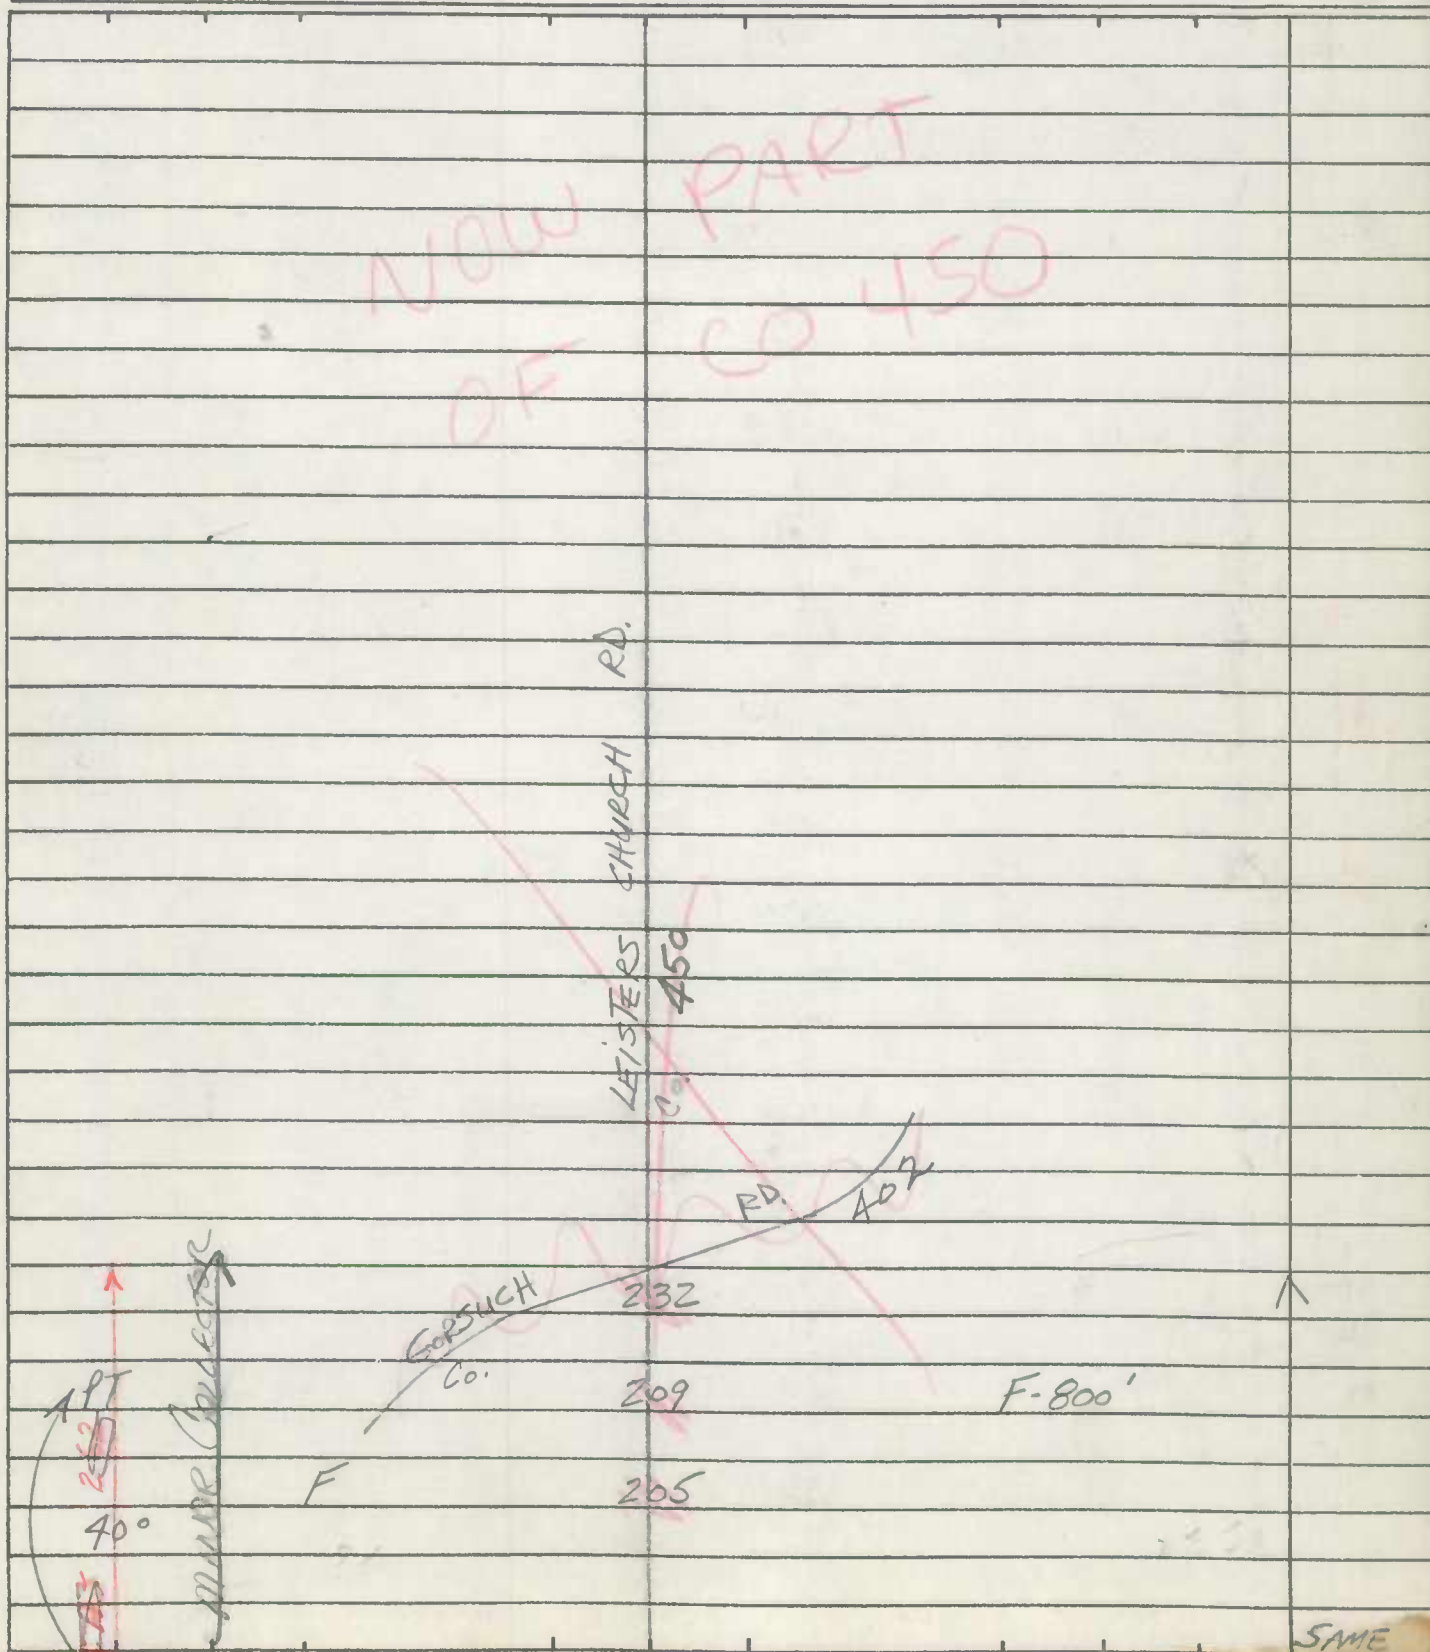 NOW PART
OF CO 450
LEISTERS CHURCH RD.
Co. 450
GORSUCH RD.
Co. 402
232
209
F-800'
205
F
PT
40°
MINOR COLLECTOR
SAME